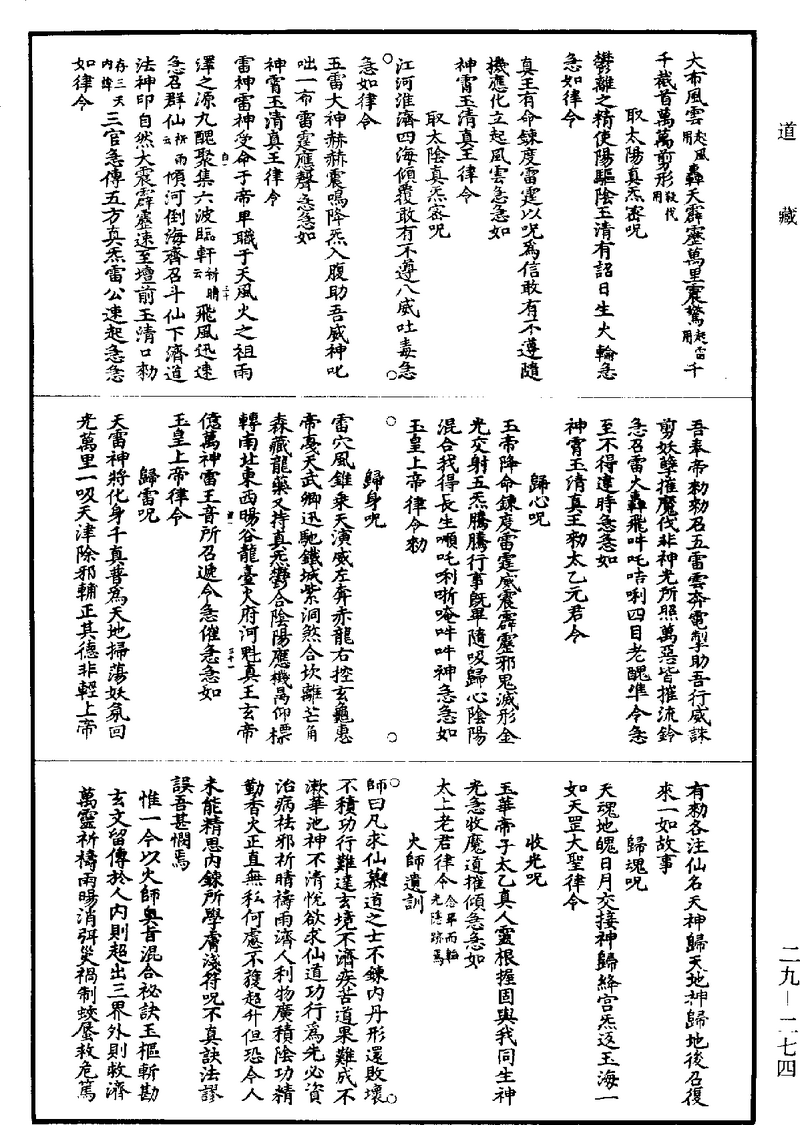 道藏
大布風雲起風用轟天霹靂萬里震驚起雷用千
千截首萬萬剪形殺伐用
取太陽真炁密呪
鬱離之精使陽驅陰玉清有詔日生火輪急
急如律令
真王有命鍊度雷霆以呪為信敢有不遵隨
機應化立起風雲急急如
神霄玉清真王律令
取太陰真炁密呪
江河淮濟四海傾覆敢有不遵八威吐毒急
急如律令
五雷大神赫赫震鳴降炁入腹助吾威神叱
咄一布雷霆應聲急急如
神霄玉清真王律令
雷神雷神受命于帝卑職于天風火之祖雨
澤之源九醜聚集六波臨軒祈晴云飛風迅速
急召群仙祈雨云傾河倒海齊召斗仙下濟道
法神印自然大震霹靂速至壇前玉清口勑
存三天內諱三官急傳五方真炁雷公速起急急
如律令
吾奉帝勑勑召五雷雲奔電掣助吾行威誅
剪妖孽摧魔伐非神光所照萬惡皆摧流鈴
急召雷火轟飛吽吒咭唎四目老醜準令急
至不得違時急急如
神霄玉清真王勑太乙元君令
歸心呪
玉帝降命鍊度雷霆威震霹靂邪鬼滅形金
光交射五炁騰騰行事既畢隨吸歸心陰陽
混合我得長生嚩吒唎哳唵吽吽神急急如
玉皇上帝律令勑
歸身呪
雷穴風錐乘天演威左奔赤龍右控玄龜惠
帝戞天武卿迅馳鐵城紫洞煞合坎離芒角
森藏龍藥文持真炁鬱合陰陽應機禺仰標
轉南北東西暘谷龍臺火府河魁真王玄帝
億萬神雷王音所召遞令急催急急如
玉皇上帝律令
歸雷呪
天雷神將化身千真普為天地掃蕩妖氛回
光萬里一吸天津除邪輔正其德非輕上帝
有勑各注仙名天神歸天地神歸地後召復
來一如故事
歸魂呪
天魂地魄日月交接神歸絳宮炁返玉海一
如天罡大聖律令
收光呪
玉華帝子太乙真人靈根握固與我同生神
光急收魔道摧傾急急如
太上老君律令念畢而輪光隱跡焉
火師遺訓
師曰凡求仙慕道之士不鍊內丹形還敗壞
不積功行難達玄境不濟疾苦道果難成不
漱華池神不清悅欲求仙道功行為先必資
治病祛邪祈晴禱雨濟人利物廣積陰功精
勤香火正直無私何慮不獲超升但恐今人
未能精思內鍊所學膚淺符呪不真訣法謬
誤吾甚憫焉
惟一今以火師奧旨混合祕訣玉樞斬勘
玄文留傳於人內則超出三界外則救濟
萬靈祈禱雨暘消弭災禍制蛟蜃救危篤
二九—二七四